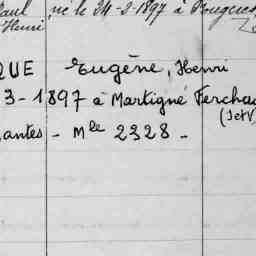 Paul né le 24-2-1897 à
Henri
QUE Eugène, Henri
3-1897 à Martigné Ferchau
(I et V)
antes - Mle 2328 -